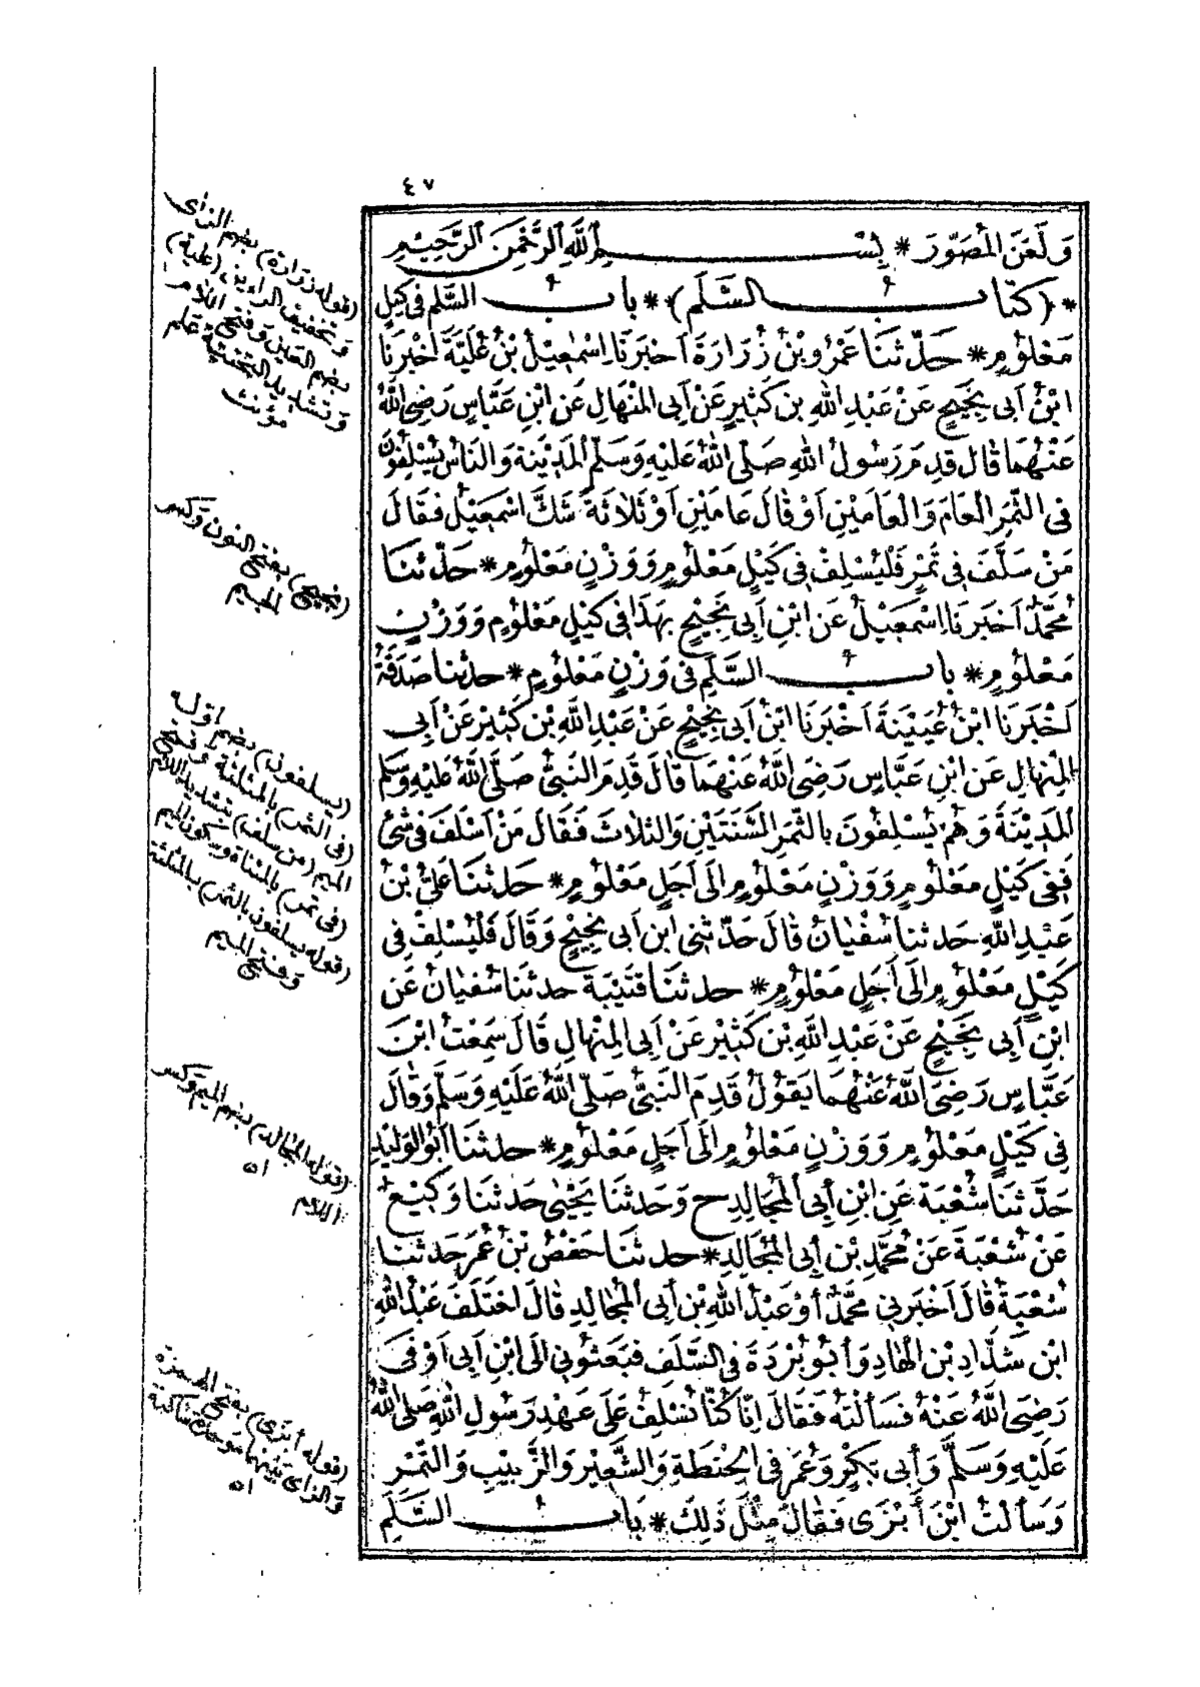 ٤٧
وَلَعَنَ الْمُصَوِّرَ * بِسْمِ اللَّهِ الرَّحْمٰنِ الرَّحِيمِ
* (كتابُ السَّلَمِ) * بابُ السَّلَمِ فِي كَيْلٍ
مَعْلُومٍ * حَدَّثَنَا عَمْرُو بْنُ زُرَارَةَ أَخْبَرَنَا إِسْمٰعِيلُ بْنُ عُلَيَّةَ أَخْبَرَنَا
ابْنُ أَبِي نَجِيحٍ عَنْ عَبْدِ اللَّهِ بنِ كَثِيرٍ عَنْ أَبِي الْمِنْهَالِ عَنِ ابْنِ عَبَّاسٍ رَضِيَ اللَّهُ
عَنْهُمَا قَالَ قَدِمَ رَسُولُ اللَّهِ صَلَّى اللَّهُ عَلَيْهِ وَسَلَّمَ الْمَدِينَةَ وَالنَّاسُ يُسْلِفُونَ
فِي الثَّمَرِ الْعَامَ وَالْعَامَيْنِ أَوْ قَالَ عَامَيْنِ أَوْ ثَلَاثَةً شَكَّ إِسْمَعِيلُ فَقَالَ
مَنْ سَلَّفَ فِي تَمْرٍ فَلْيُسْلِفْ فِي كَيْلٍ مَعْلُومٍ وَوَزْنٍ مَعْلُومٍ * حَدَّثَنَا
مُحَمَّدٌ أَخْبَرَنَا إِسْمَعِيلُ عَنِ ابْنِ أَبِي نَجِيحٍ بِهَذَا فِي كَيْلٍ مَعْلُومٍ وَوَزْنٍ
مَعْلُومٍ * بابُ السَّلَمِ فِي وَزْنٍ مَعْلُومٍ * حدثنا صَدَقَةُ
أَخْبَرَنَا ابْنُ عُيَيْنَةَ أَخْبَرَنَا ابْنُ أَبِي نَجِيحٍ عَنْ عَبْدِ اللَّهِ بْنِ كَثِيرٍ عَنْ أَبِي
الْمِنْهَالِ عَنِ ابْنِ عَبَّاسٍ رَضِيَ اللَّهُ عَنْهُمَا قَالَ قَدِمَ النَّبِيُّ صَلَّى اللَّهُ عَلَيْهِ وَسَلَّمَ
الْمَدِينَةَ وَهُمْ يُسْلِفُونَ بِالثَّمَرِ السَّنَتَيْنِ وَالثَّلَاثَ فَقَالَ مَنْ أَسْلَفَ فِي شَيْءٍ
فَفِي كَيْلٍ مَعْلُومٍ وَوَزْنٍ مَعْلُومٍ إِلَى أَجَلٍ مَعْلُومٍ * حَدثنَا عَلِيُّ بْنُ
عَبْدِ اللَّهِ حَدثنا سُفْيَانُ قَالَ حَدَّثَنِي ابْنُ أَبِي نَجِيحٍ وَقَالَ فَلْيُسْلِفْ فِي
كَيْلٍ مَعْلُومٍ إِلَى أَجَلٍ مَعْلُومٍ * حدثنَا قُتَيْبَةُ حدثنَا سُفْيَانُ عَنِ
ابْنِ أَبِي نَجِيحٍ عَنْ عَبْدِ اللَّهِ بْنِ كَثِيرٍ عَنْ أَبِي الْمِنْهَالِ قَالَ سَمِعْتُ ابْنَ
عَبَّاسٍ رَضِيَ اللَّهُ عَنْهُمَا يَقُولُ قَدِمَ النَّبِيُّ صَلَّى اللَّهُ عَلَيْهِ وَسَلَّمَ وَقَالَ
فِي كَيْلٍ مَعْلُومٍ وَوَزْنٍ مَعْلُومٍ إِلَى أَجَلٍ مَعْلُومٍ * حدثنَا أَبُو الْوَلِيدِ
حَدَّثَنَا شُعْبَةُ عَنِ ابْنِ أَبِي الْمُجَالِدِ ح وَحَدثنَا يَحْيَى حَدثنَا وَكِيعٌ
عَنْ شُعْبَةَ عَنْ مُحَمَّدِ بْنِ أَبِي الْمُجَالِدِ * حدثنَا حَفْصُ بْنُ عُمَرَ حَدثنَا
شُعْبَةُ قَالَ أَخْبَرَنِي مُحَمَّدٌ أَوْ عَبْدُ اللَّهِ بْنُ أَبِي الْمُجَالِدِ قَالَ اخْتَلَفَ عَبْدُ اللَّهِ
ابْنُ شَدَّادِ بْنِ الْهَادِ وَأَبُو بُرْدَةَ فِي السَّلَفِ فَبَعَثُونِي إِلَى ابْنِ أَبِي أَوْفَى
رَضِيَ اللَّهُ عَنْهُ فَسَأَلْتُهُ فَقَالَ إِنَّا كُنَّا نُسْلِفُ عَلَى عَهْدِ رَسُولِ اللَّهِ صَلَّى اللَّهُ
عَلَيْهِ وَسَلَّمَ وَأَبِي بَكْرٍ وَعُمَرَ فِي الْحِنْطَةِ وَالشَّعِيرِ وَالزَّبِيبِ وَالتَّمْرِ
وَسَأَلْتُ ابْنَ أَبْزَى فَقَالَ مِثْلَ ذَلِكَ * بَابُ السَّلَمِ
(قوله زرارة) بضم الزاى
وتخفيف الراءين (علية)
بضم العين وفتح اللام
وتشديد التحتية علم
مؤنث
(نجيح) بفتح النون وكسر
الجيم
(يسلفون) بضم أوله
(فى الثمر) بالمثلثة وفتح
الميم (من سلف) بتشديد اللام
(فى تمر) بالمثناة وسكون الميم
(قوله يسلفون بالثمر) بالمثلثة
وفتح الميم
(قوله المجالد) بضم الميم وكسر
اللام اه
(قوله أبزى) بفتح الهمزة
والزاى بينهما موحدة ساكنة
اه